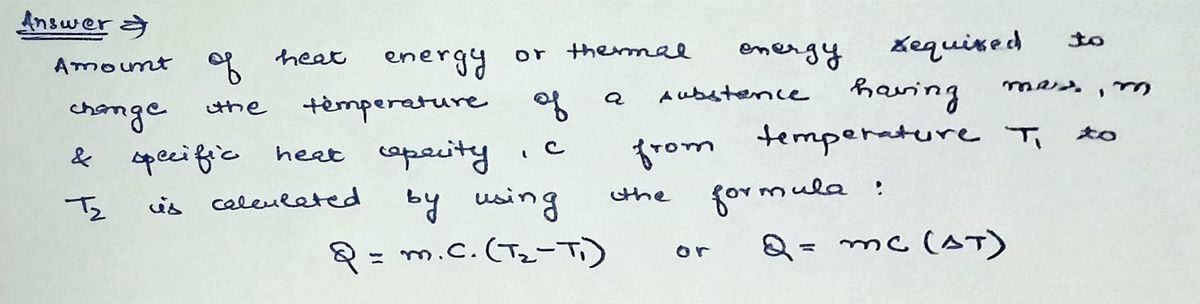 Answer ⇒
Amount of heat energy or thermal energy required to
change the temperature of a substance having mass, m
& specific heat capacity, c from temperature T₁ to
T₂ is calculated by using the formula :
Q = m.C.(T₂-T₁) or Q = mc (ΔT)